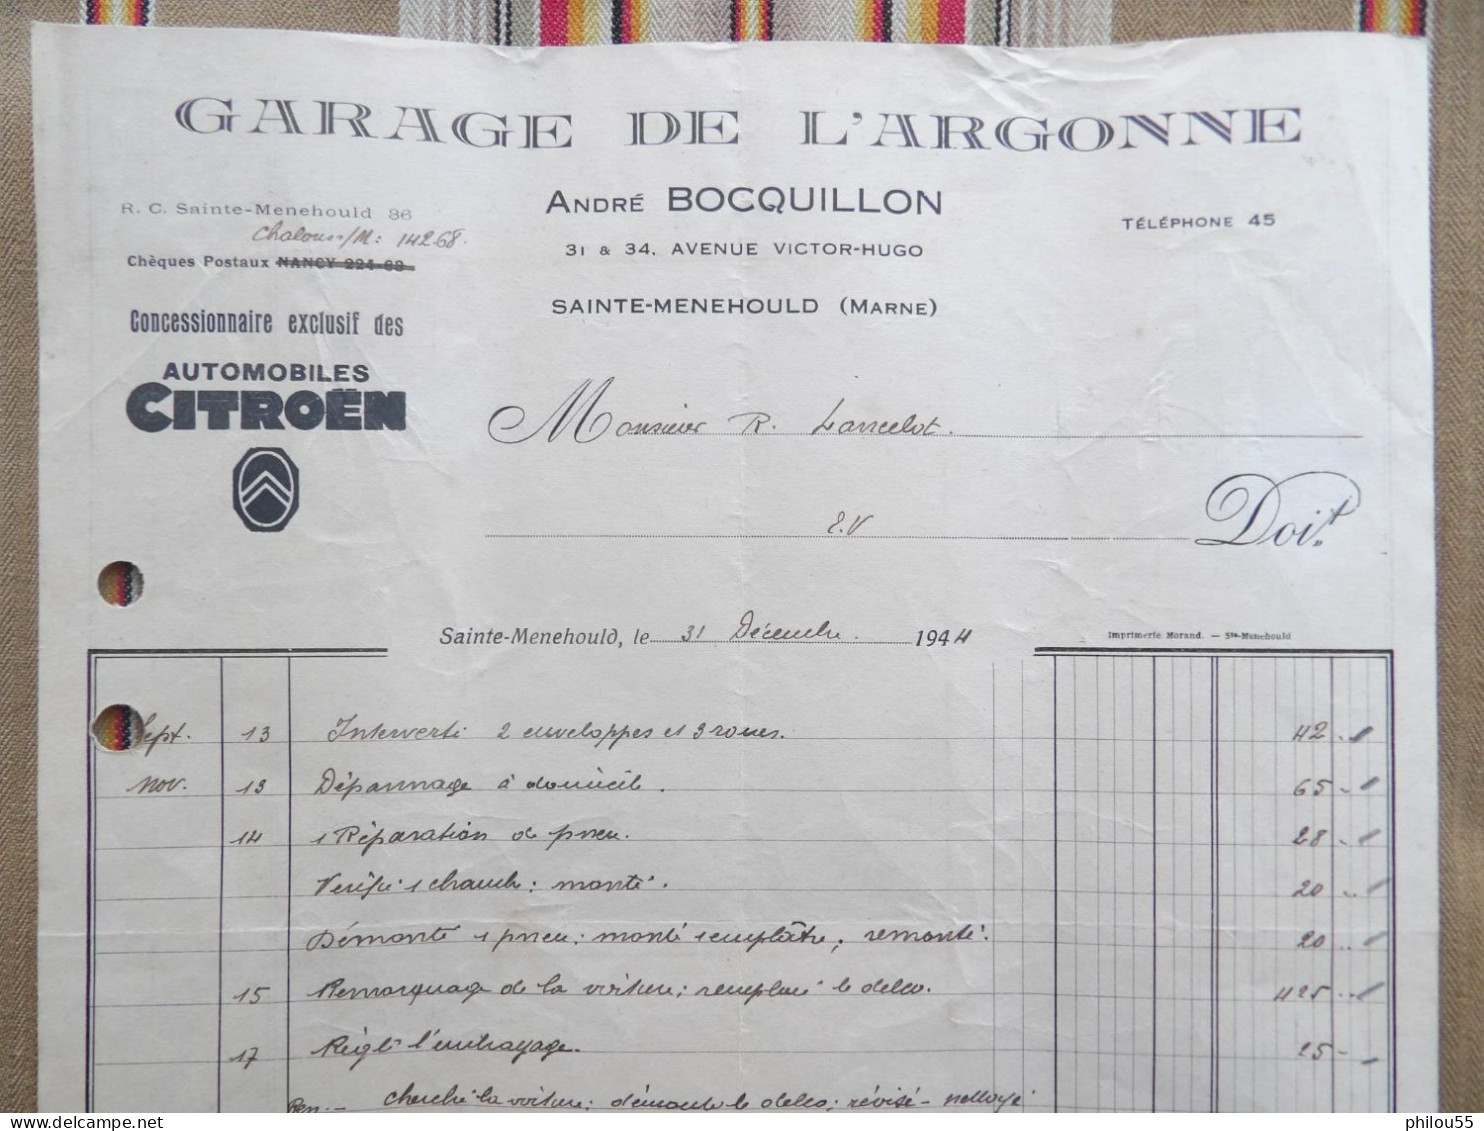 GARAGE DE L'ARGONNE
R. C. Sainte-Menehould 86
ANDRÉ BOCQUILLON
TÉLÉPHONE 45
Chalons/M: 14268.
31 & 34, AVENUE VICTOR-HUGO
Chèques Postaux NANCY 224-83
SAINTE-MENEHOULD (MARNE)
Concessionnaire exclusif des
AUTOMOBILES
CITROËN
Monsieur R. Lancelot.
E.V Doit
Sainte-Menehould, le 31 Décembre 1944
Imprimerie Morand. — Ste-Menehould
Sept. 13 Interverti 2 enveloppes et 3 roues. 42
Nov. 13 Dépannage à domicile. 65
14 1 Réparation de pneu. 28
Vérifié 1 chambre: monté. 20
Démonté 1 pneu: monté 1 emplâtre; remonté. 20
15 Remorquage de la voiture; remplacé le delco. 425
17 Réglé l'embrayage. 25
cherché la voiture; démonté le delco; révisé - nettoyé
delcampe.net
philou55